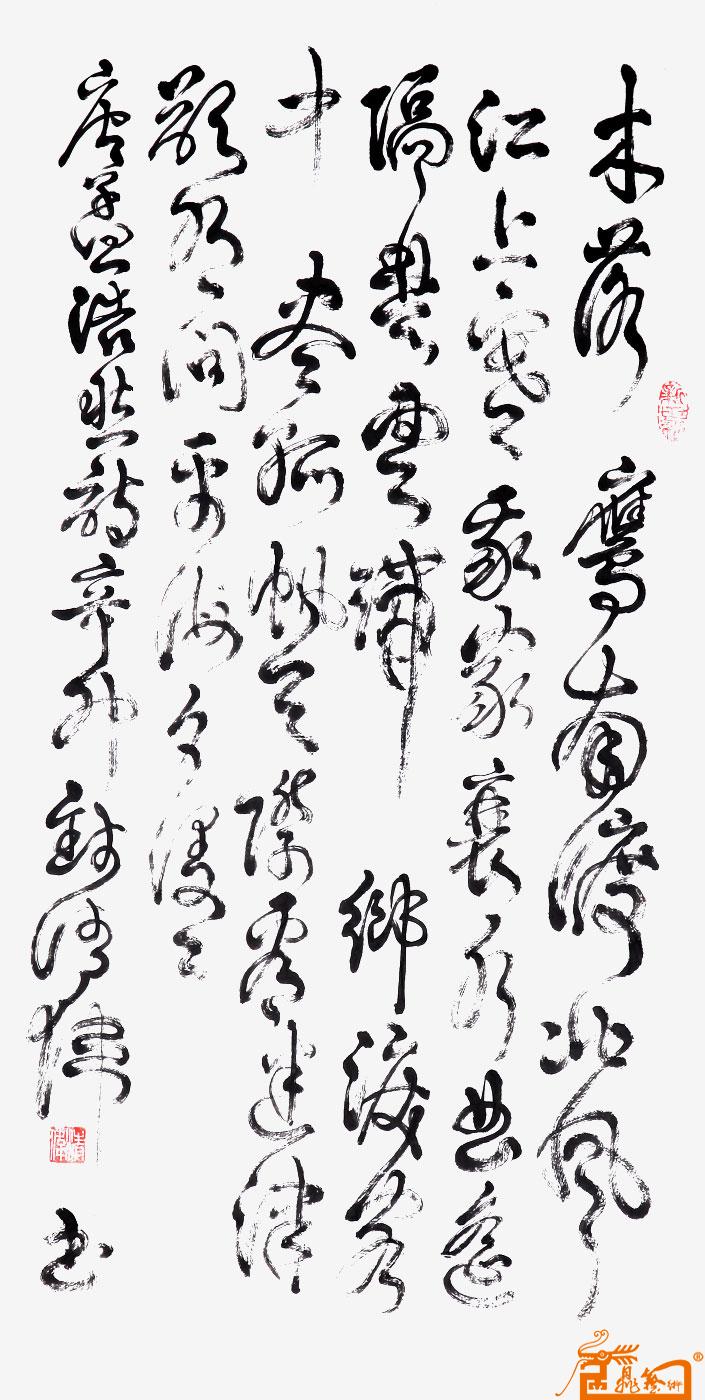 木落鷹南渡北風
江上寒我家襄水曲遙
隔楚雲端鄉淚客
中盡孤帆天際看迷津
欲有問平海夕漫漫
唐孟浩然詩辛卯書